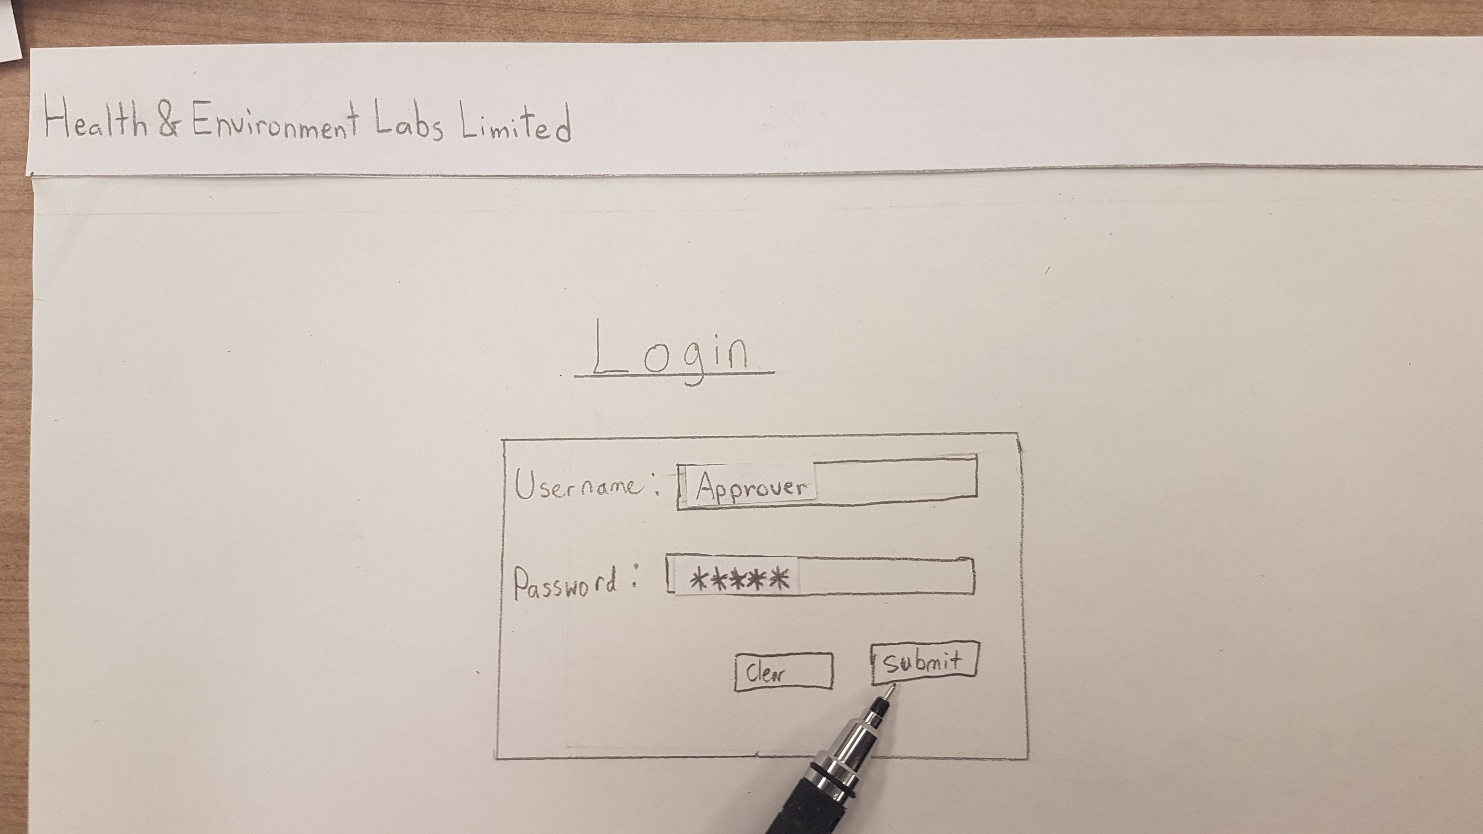 Health & Environment Labs Limited
Login
Username: Approver
Password: *****
Clear Submit